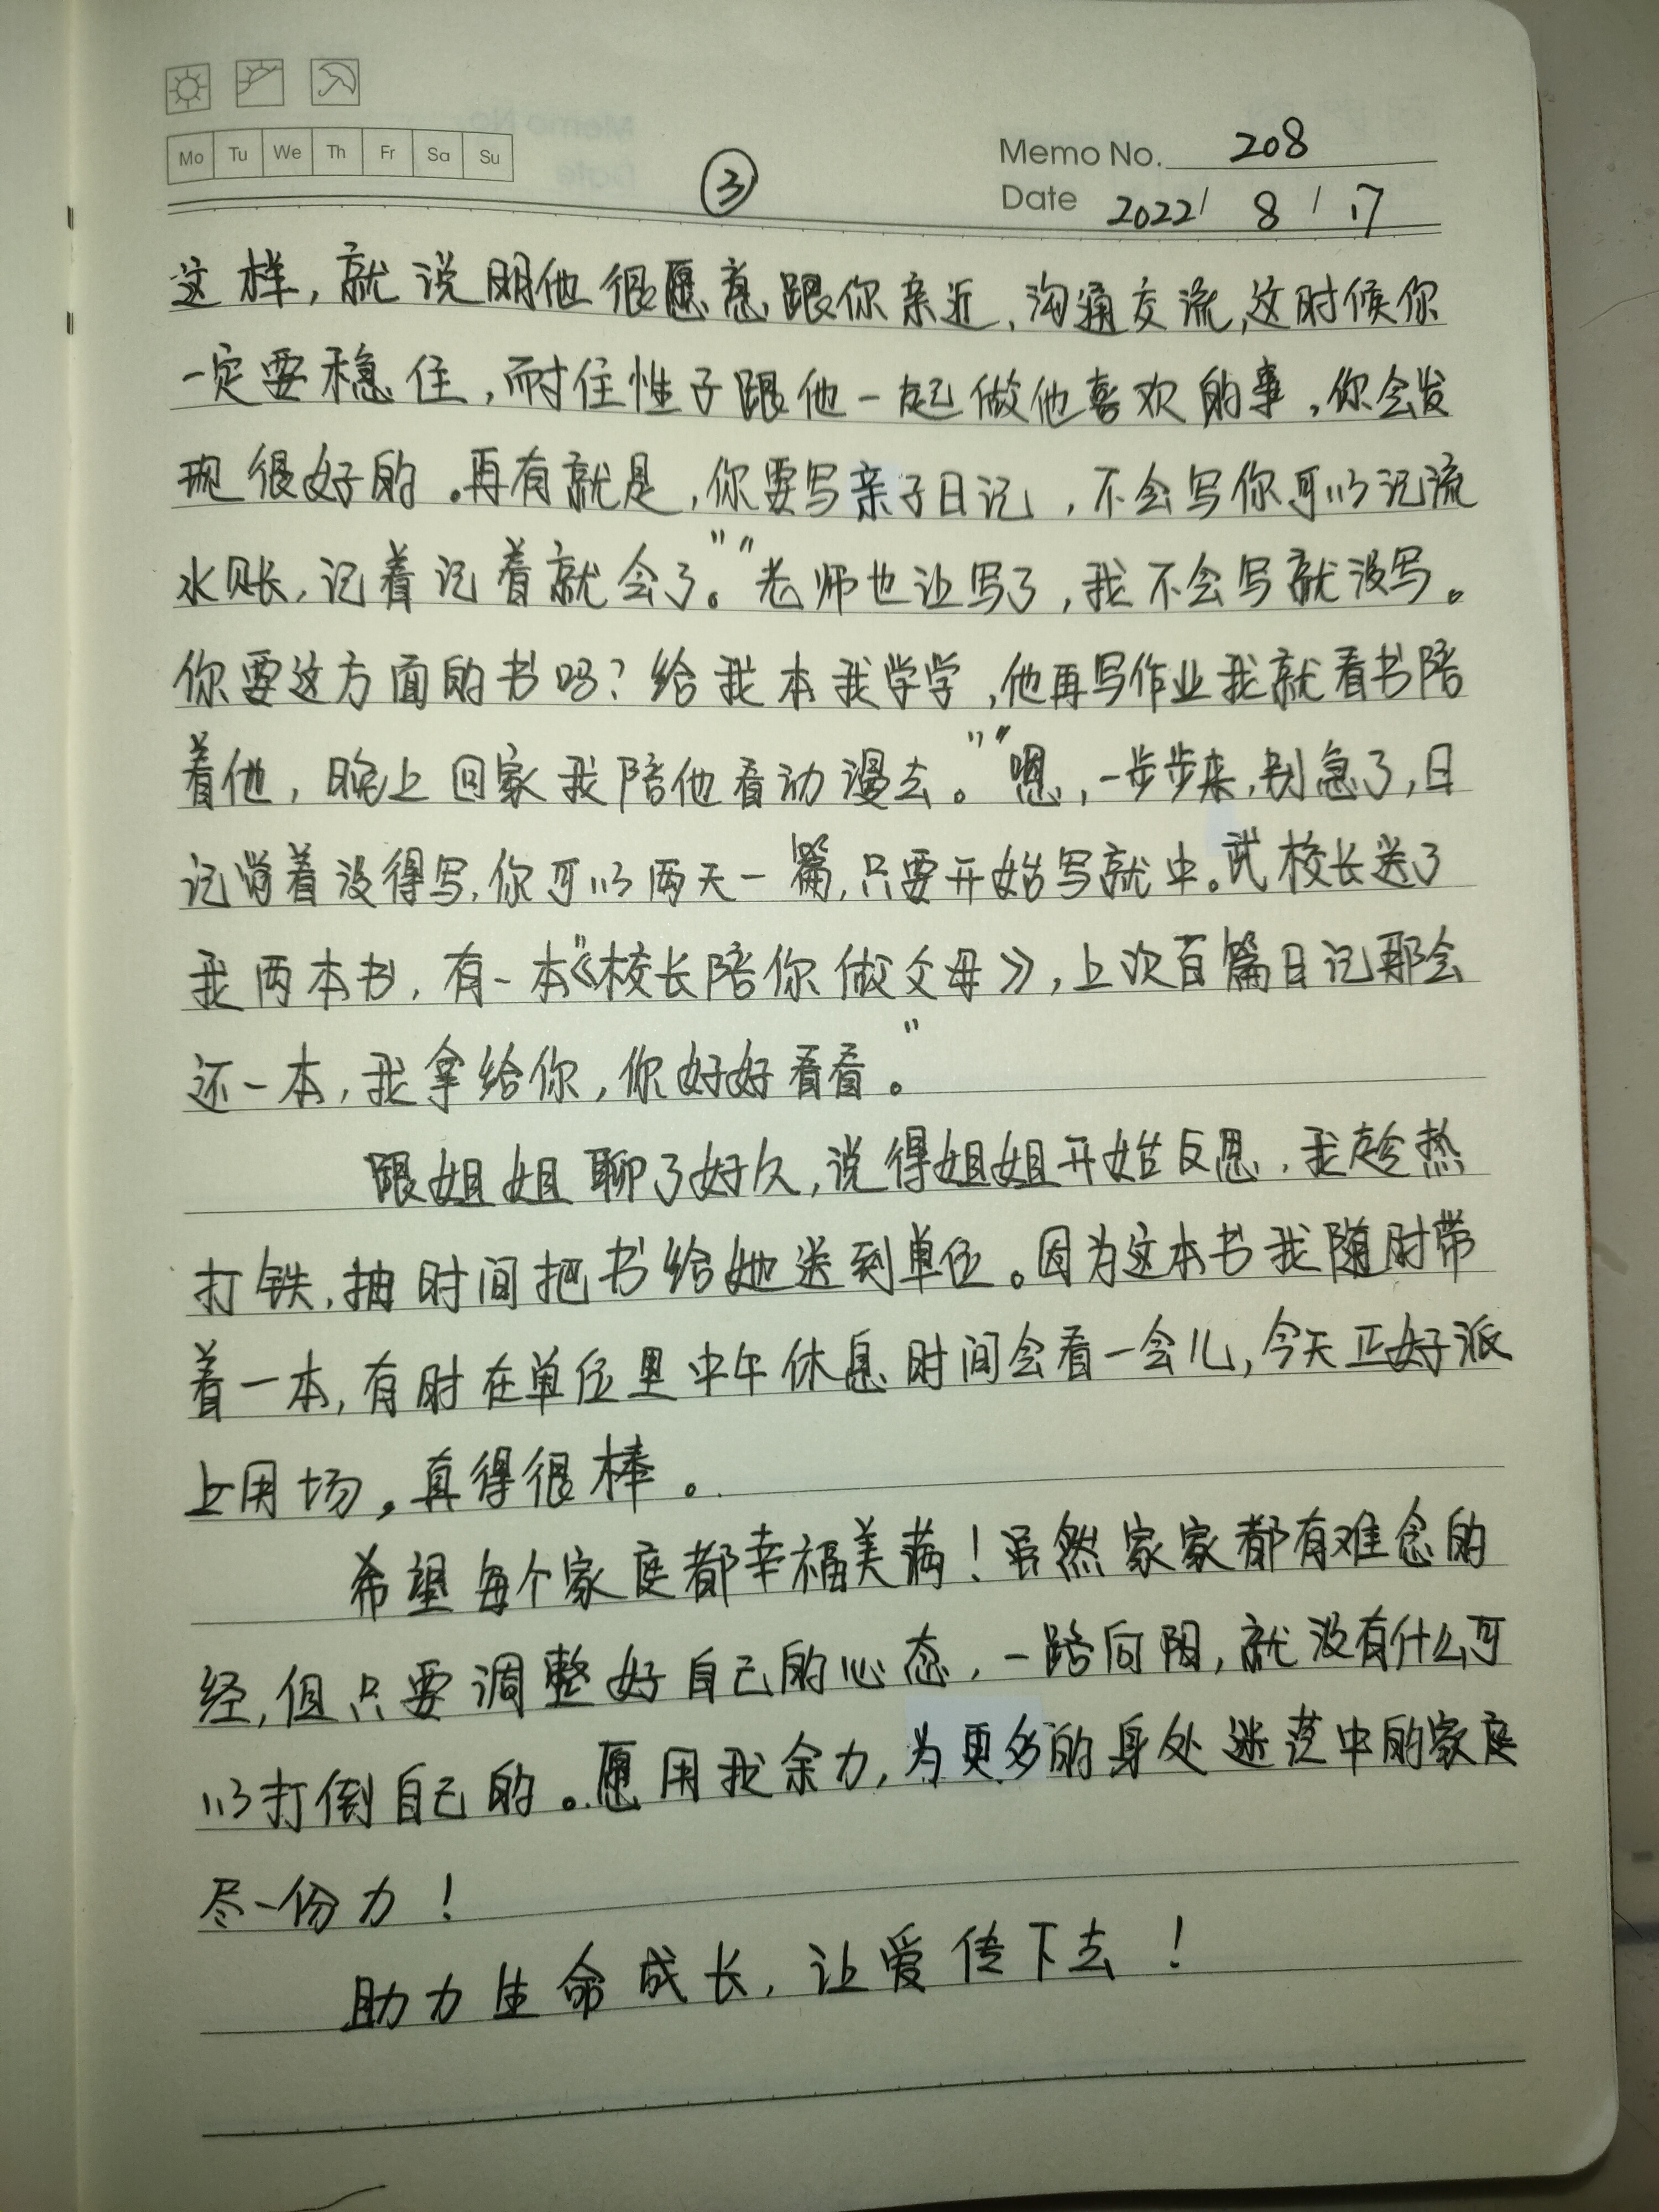 Mo Tu We Th Fr Sa Su
③
Memo No. 208
Date 2022/ 8 / 17
这样,就说明他很愿意跟你亲近,沟通交流,这时候你
一定要稳住,耐住性子跟他一起做他喜欢的事,你会发
现很好的。再有就是,你要写亲子日记,不会写你可以记流
水账,记着记着就会了。""老师也让写了,我不会写就没写。
你要这方面的书吗?给我本我学学,他再写作业我就看书陪
着他,晚上回家我陪他看动漫去。""嗯,一步步来,别急了,日
记尚着没得写,你可以两天一篇,只要开始写就中。武校长送了
我两本书,有一本《校长陪你做父母》,上次百篇日记那会
还一本,我拿给你,你好好看看。"
跟姐姐聊了好久,说得姐姐开始反思,我趁热
打铁,抽时间把书给她送到单位。因为这本书我随时带
着一本,有时在单位里中午休息时间会看一会儿,今天正好派
上用场,真得很棒。
希望每个家庭都幸福美满!虽然家家都有难念的
经,但只要调整好自己的心态,一路向阳,就没有什么可
以打倒自己的。愿用我余力,为更多的身处迷茫中的家庭
尽一份力!
助力生命成长,让爱传下去!